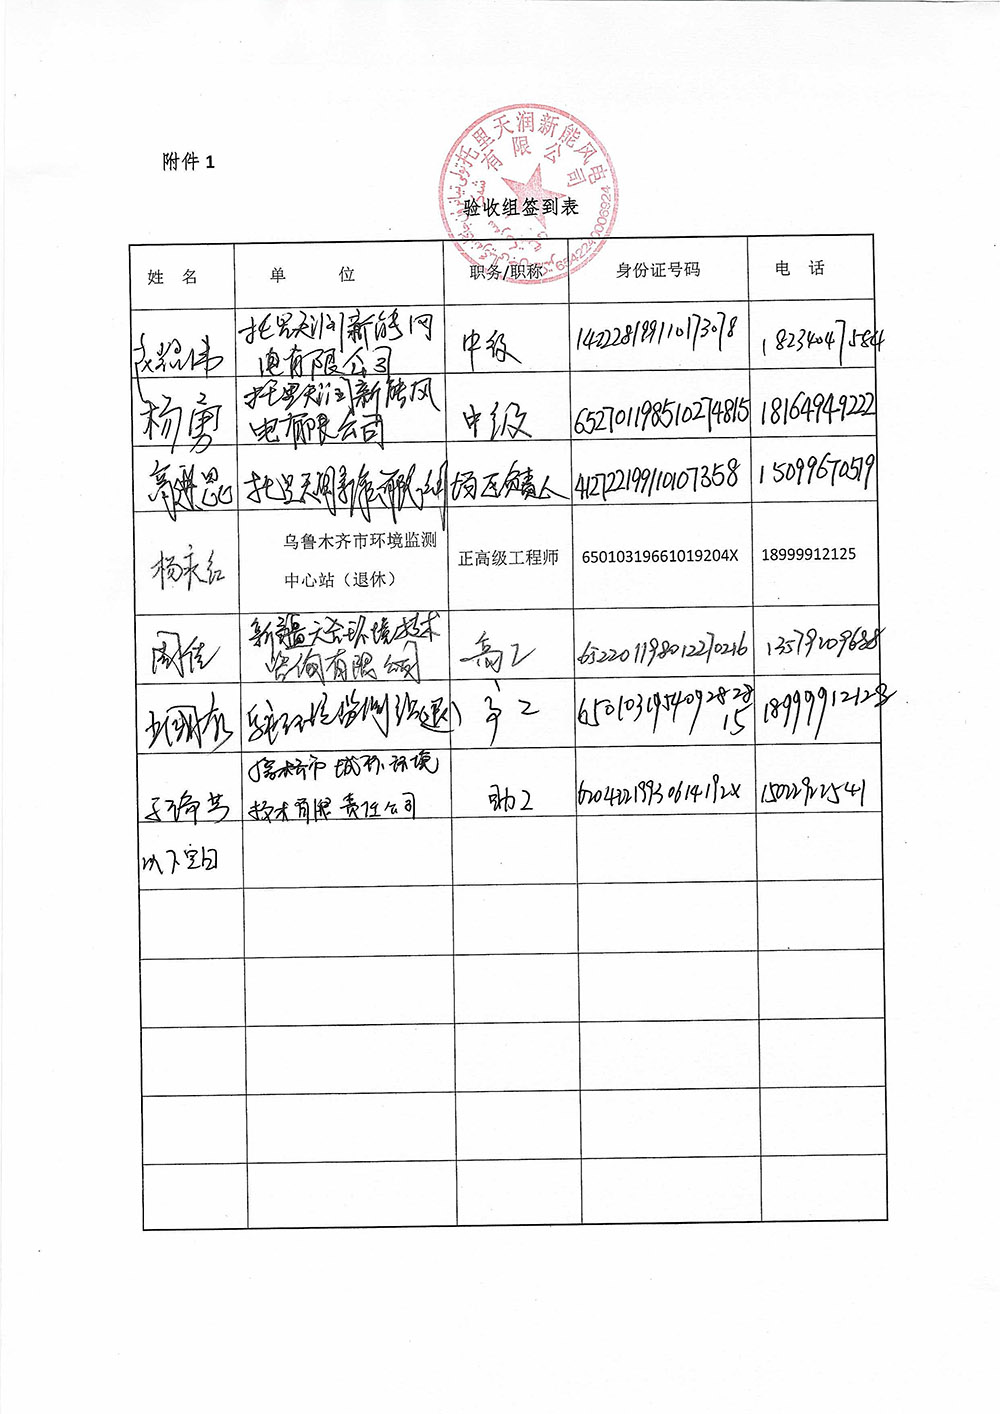 附件 1
托里天润新能风电
有限公司
6542240006924
验收组签到表
姓 名 单 位 职务/职称 身份证号码 电 话
托里天润新能风 中级 142228199110173078 18234047584
电有限公司
杨勇 托里天润新能风 中级 652701198510274815 18164949222
电有限公司
托里天润新能 场区负责人 412722199110107358 15099670519
乌鲁木齐市环境监测
杨 正高级工程师 65010319661019204X 18999912125
中心站（退休）
周佳 新疆天 环境技术 高工 652201198012270216 13579209688
咨询有限公司
高工 6501031954092828
15 18999912123
市 环境 助工 62043219930614192X 15022922541
技术有限责任公司
以下空白